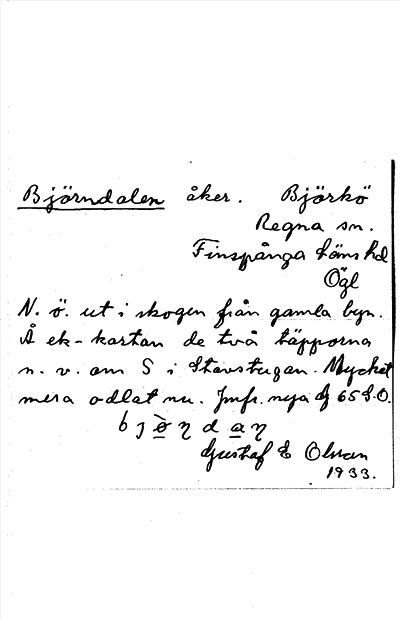 Björndalen åker. Björkö
Regna sn.
Finspånga läns hd
Ögl
N. ö. ut i skogen från gamla byn.
Å ek-kartan de två täpporna
n. v. om S i Stavstugan. Mycket
mera odlat nu. Jmfr. nya
b j ö̀ η d a η
Gustaf E Olsson
1933.